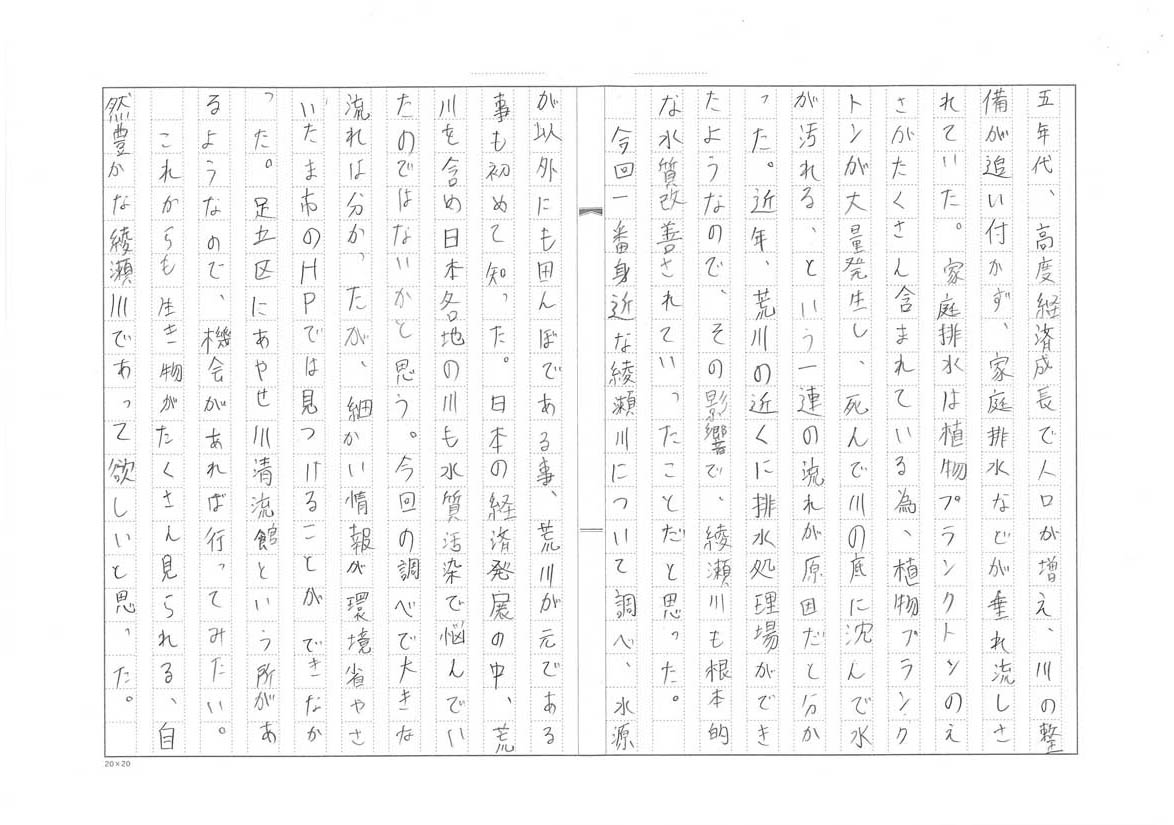 五年代、高度経済成長で人口が増え、川の整
備が追い付かず、家庭排水などが垂れ流しさ
れていた。家庭排水は植物プランクトンのえ
さがたくさん含まれている為、植物プランク
トンが大量発生し、死んで川の底に沈んで水
が汚れる、という一連の流れが原因だと分か
った。近年、荒川の近くに排水処理場ができ
たようなので、その影響で、綾瀬川も根本的
な水質改善されていったことだと思った。
今回一番身近な綾瀬川について調べ、水源
が以外にも田んぼである事、荒川が元である
事も初めて知った。日本の経済発展の中、荒
川を含め日本各地の川も水質汚染で悩んでい
たのではないかと思う。今回の調べで大きな
流れは分かったが、細かい情報が環境省やさ
いたま市のHPでは見つけることができなか
った。足立区にあやせ川清流館という所があ
るようなので、機会があれば行ってみたい。
これからも生き物がたくさん見られる、自
然豊かな綾瀬川であって欲しいと思った。
20×20